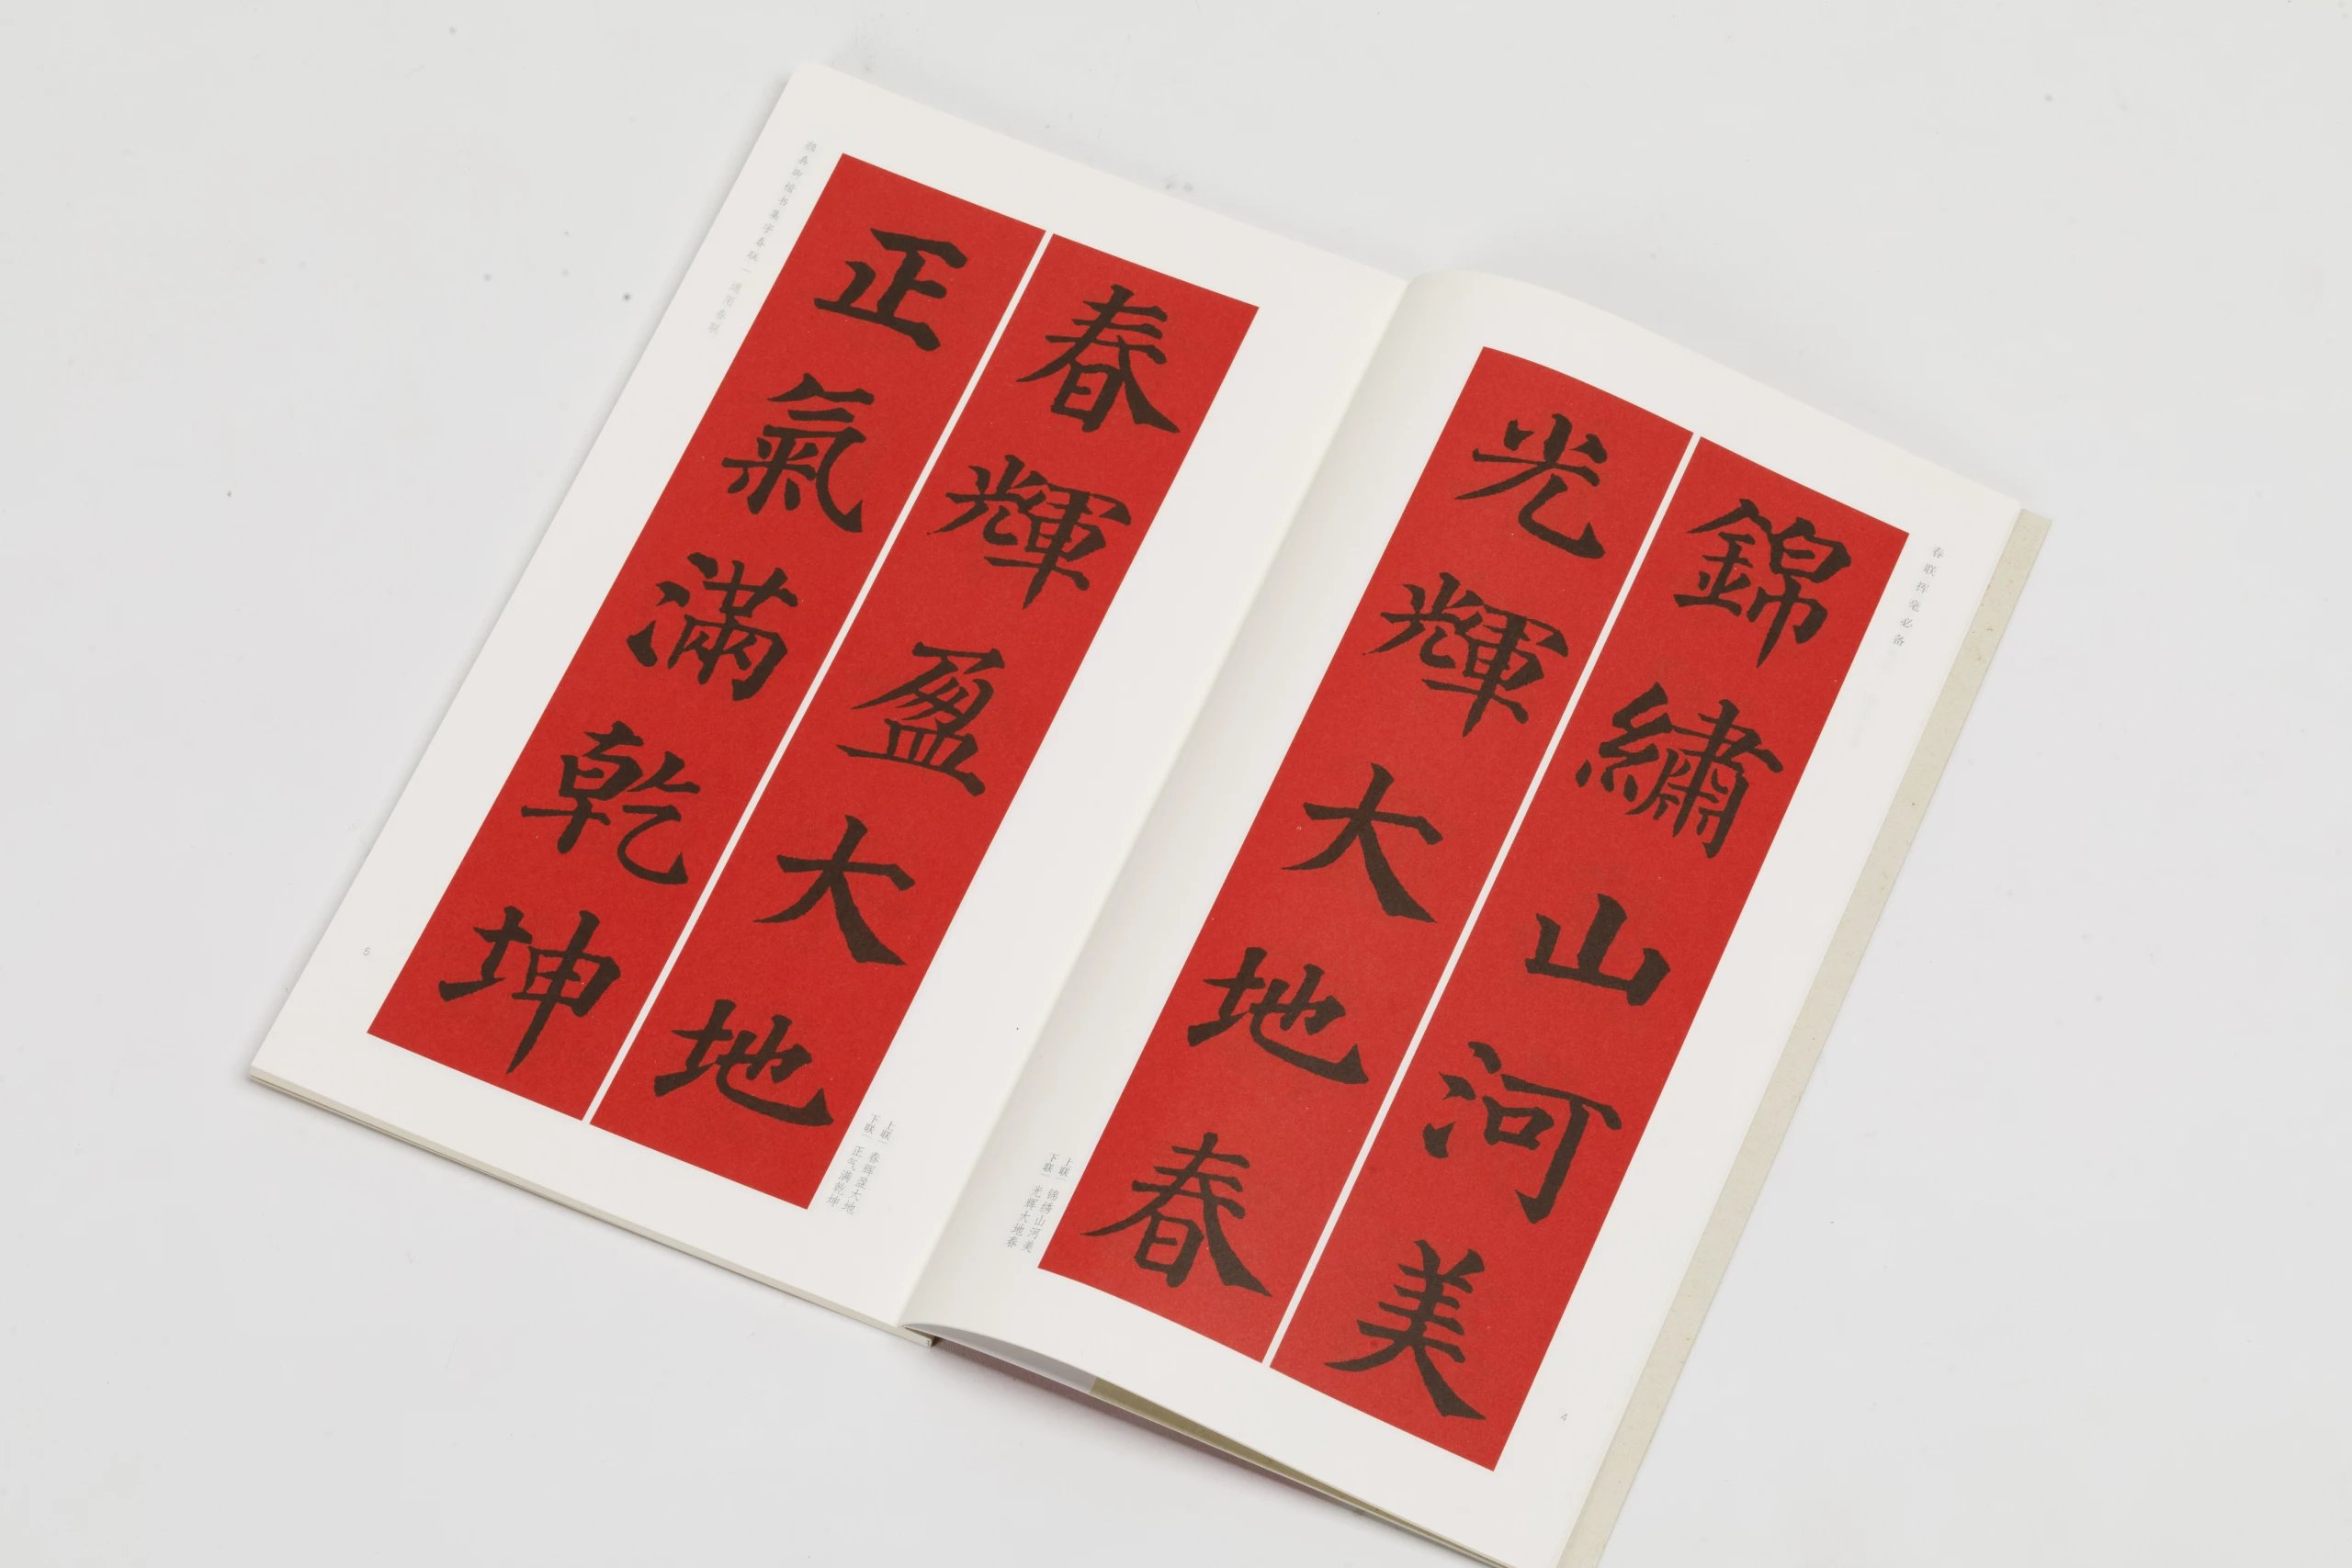 春联挥毫必备
錦繡山河美
光輝大地春
上联 锦绣山河美
下联 光辉大地春
4
春輝盈大地
正氣滿乾坤
上联 春辉盈大地
下联 正气满乾坤
颜真卿楷书集字春联 一 通用春联
5